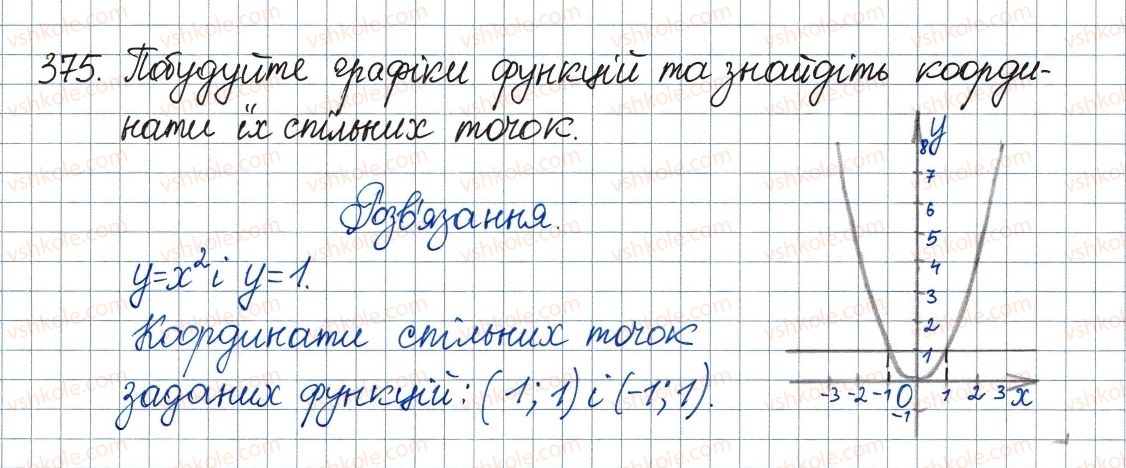 375. Побудуйте графіки функцій та знайдіть коорди-
нати їх спільних точок.
Розв'язання.
y=x² і y=1.
Координати спільних точок
заданих функцій: (1; 1) і (-1; 1).
y
8
7
6
5
4
3
2
1
-3 -2 -1 0 1 2 3 x
-1
vshkole.com